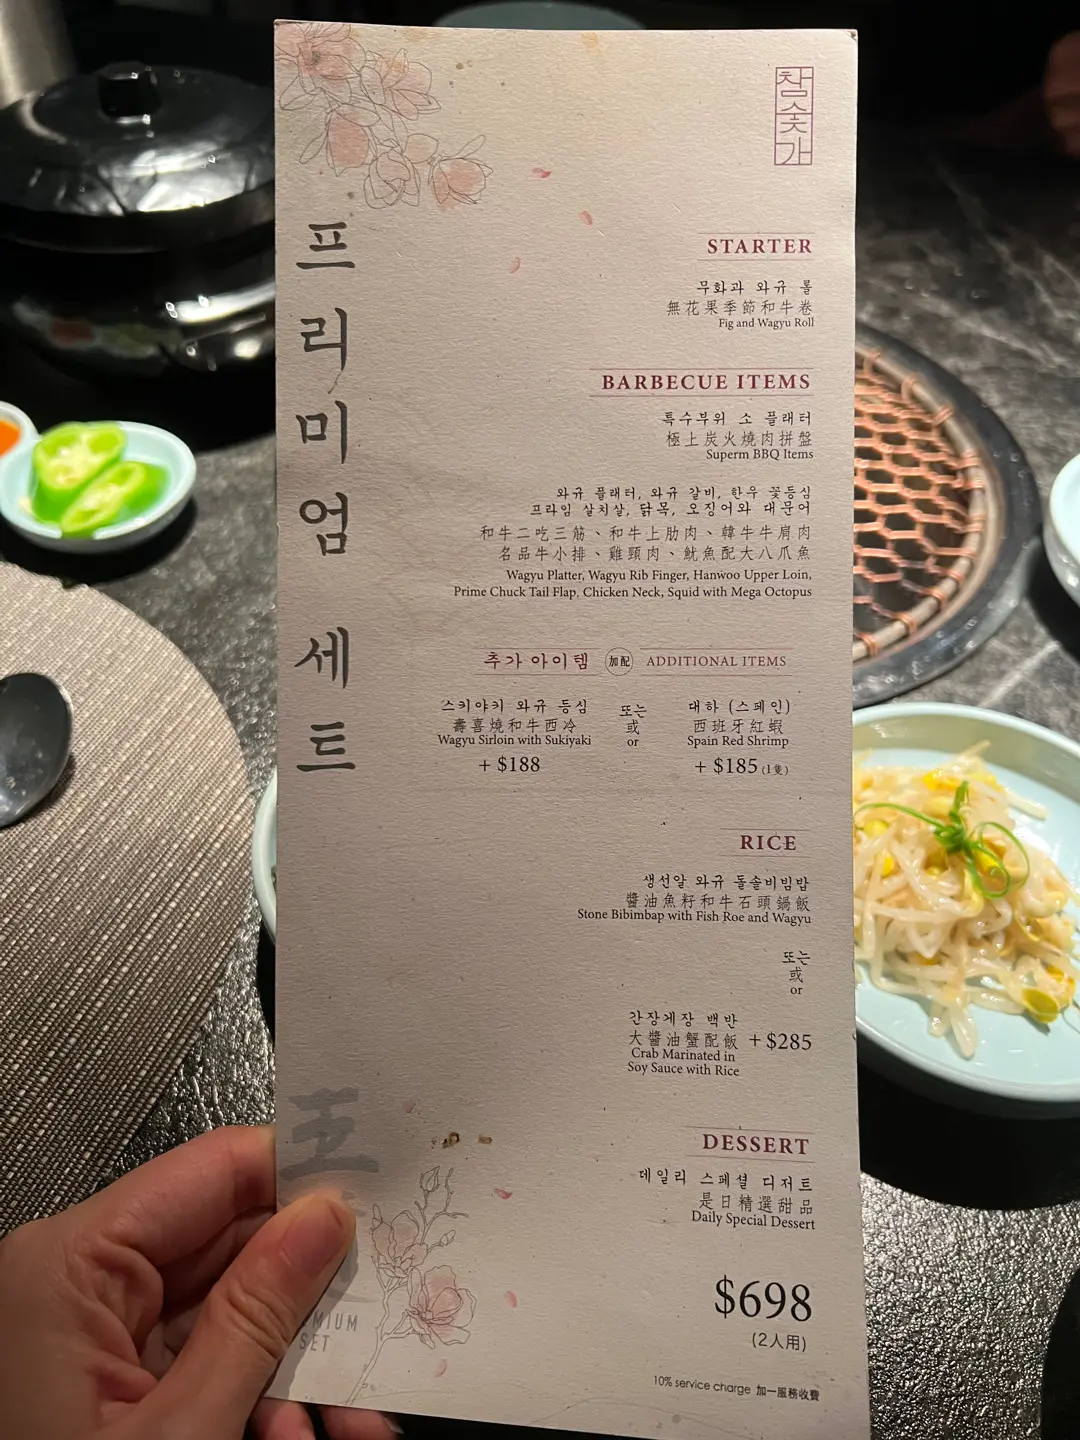 참숯가
프리미엄 세트
STARTER
무화과 와규 롤
無花果季節和牛卷
Fig and Wagyu Roll
BARBECUE ITEMS
특수부위 소 플래터
極上炭火燒肉拼盤
Superm BBQ Items
와규 플래터, 와규 갈비, 한우 꽃등심
프라임 살치살, 닭목, 오징어와 대문어
和牛二吃三筋、和牛上肋肉、韓牛牛肩肉
名品牛小排、雞頸肉、魷魚配大八爪魚
Wagyu Platter, Wagyu Rib Finger, Hanwoo Upper Loin,
Prime Chuck Tail Flap, Chicken Neck, Squid with Mega Octopus
추가 아이템 加配 ADDITIONAL ITEMS
스키야키 와규 등심
壽喜燒和牛西冷
Wagyu Sirloin with Sukiyaki
+ $188
또는
或
or
대하 (스페인)
西班牙紅蝦
Spain Red Shrimp
+ $185 (1隻)
RICE
생선알 와규 돌솥비빔밥
醬油魚籽和牛石頭鍋飯
Stone Bibimbap with Fish Roe and Wagyu
또는
或
or
간장게장 백반
大醬油蟹配飯 + $285
Crab Marinated in
Soy Sauce with Rice
DESSERT
데일리 스페셜 디저트
是日精選甜品
Daily Special Dessert
$698
(2人用)
SET
10% service charge 加一服務收費